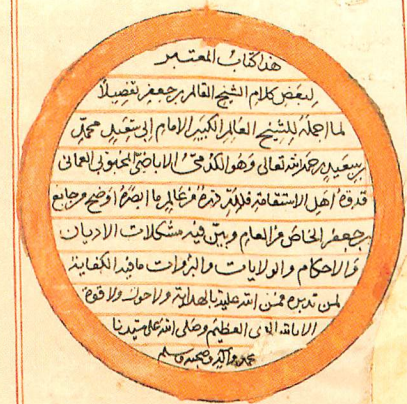 هذا كتاب المعتبر
لبعض كلام الشيخ العالم بن جعفر تفصيلاً
لما اجمله للشيخ العالم الكبير الامام ابي سعيد محمد
بن سعيد رحمه الله تعالى وهو الكدمي الاباضي المحبوبي العماني
قدوة اهل الاستقامة فلله دره من عالم ما ابصره اوضح من جامع
بن جعفر الخاص من العام وبين فيه مشكلات الاديان
والاحكام والولايات والبروات ما فيه الكفاية
لمن تدبره فمن الله عليه بالهداية ولا حول ولا قوة
الا بالله العلي العظيم وصلى الله على سيدنا
محمد واله وصحبه وسلم